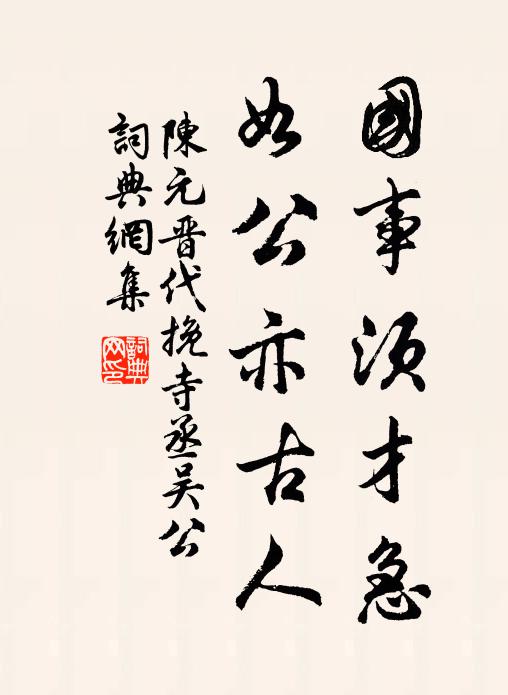 國事須才急
如公亦古人
陳元晋代挽寺丞吴公
詞典網集
詞典網印